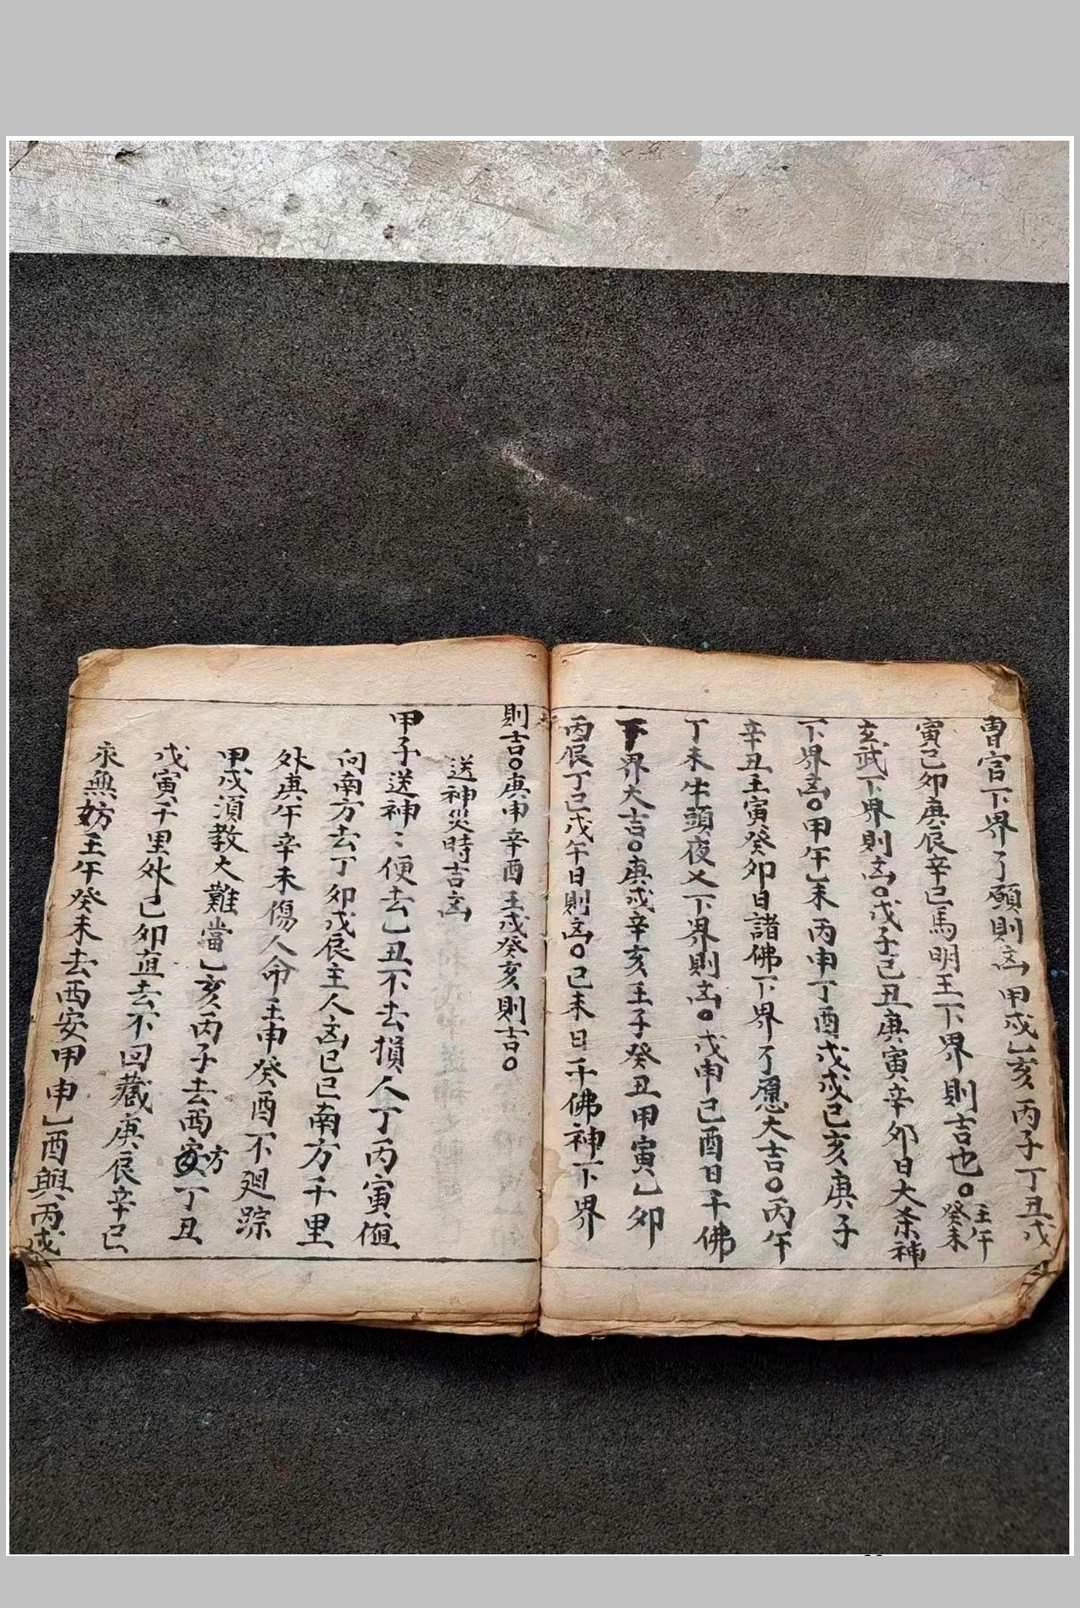 曹官下界了願則凶甲戍乙亥丙子丁丑戊
寅己卯庚辰辛巳馬明王下界則吉也○壬午癸未
玄武下界則凶○戊子己丑庚寅辛卯日大杀神
下界凶○甲午乙未丙申丁酉戊戌己亥庚子
辛丑壬寅癸卯日諸佛下界了愿大吉○丙午
丁未牛頭夜乂下界則凶○戊申己酉日千佛
下界大吉○庚戍辛亥壬子癸丑甲寅乙卯
丙辰丁巳戊午日則凶○己未日千佛神下界
則吉○庚申辛酉壬戍癸亥則吉○
送神災時吉凶
甲子送神〻便去乙丑不去損人丁丙寅但
向南方去丁卯戊辰主人凶己巳南方千里
外庚午辛未傷人命壬申癸酉不廻踪
甲戍湏教大難當乙亥丙子去西方丁丑
戊寅千里外己卯直去不回藏庚辰辛巳
永無妨壬午癸未去西安甲申乙酉興丙戍